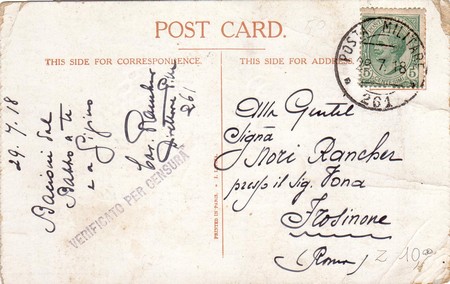 POST CARD.
THIS SIDE FOR CORRESPONDENCE.
THIS SIDE FOR ADDRESS.
POSTA MILITARE
29 7 18
261
5 5
29.7.18
Bacioni dal
Babbo a te
e a Gigino
Cav. Rancher
Direttore Posta
261
VERIFICATO PER CENSURA
PRINTED IN PARIS.
Alla Gentil
Sigña
Nori Rancher
presso il Sig. Tona
Frosinone
(Roma)